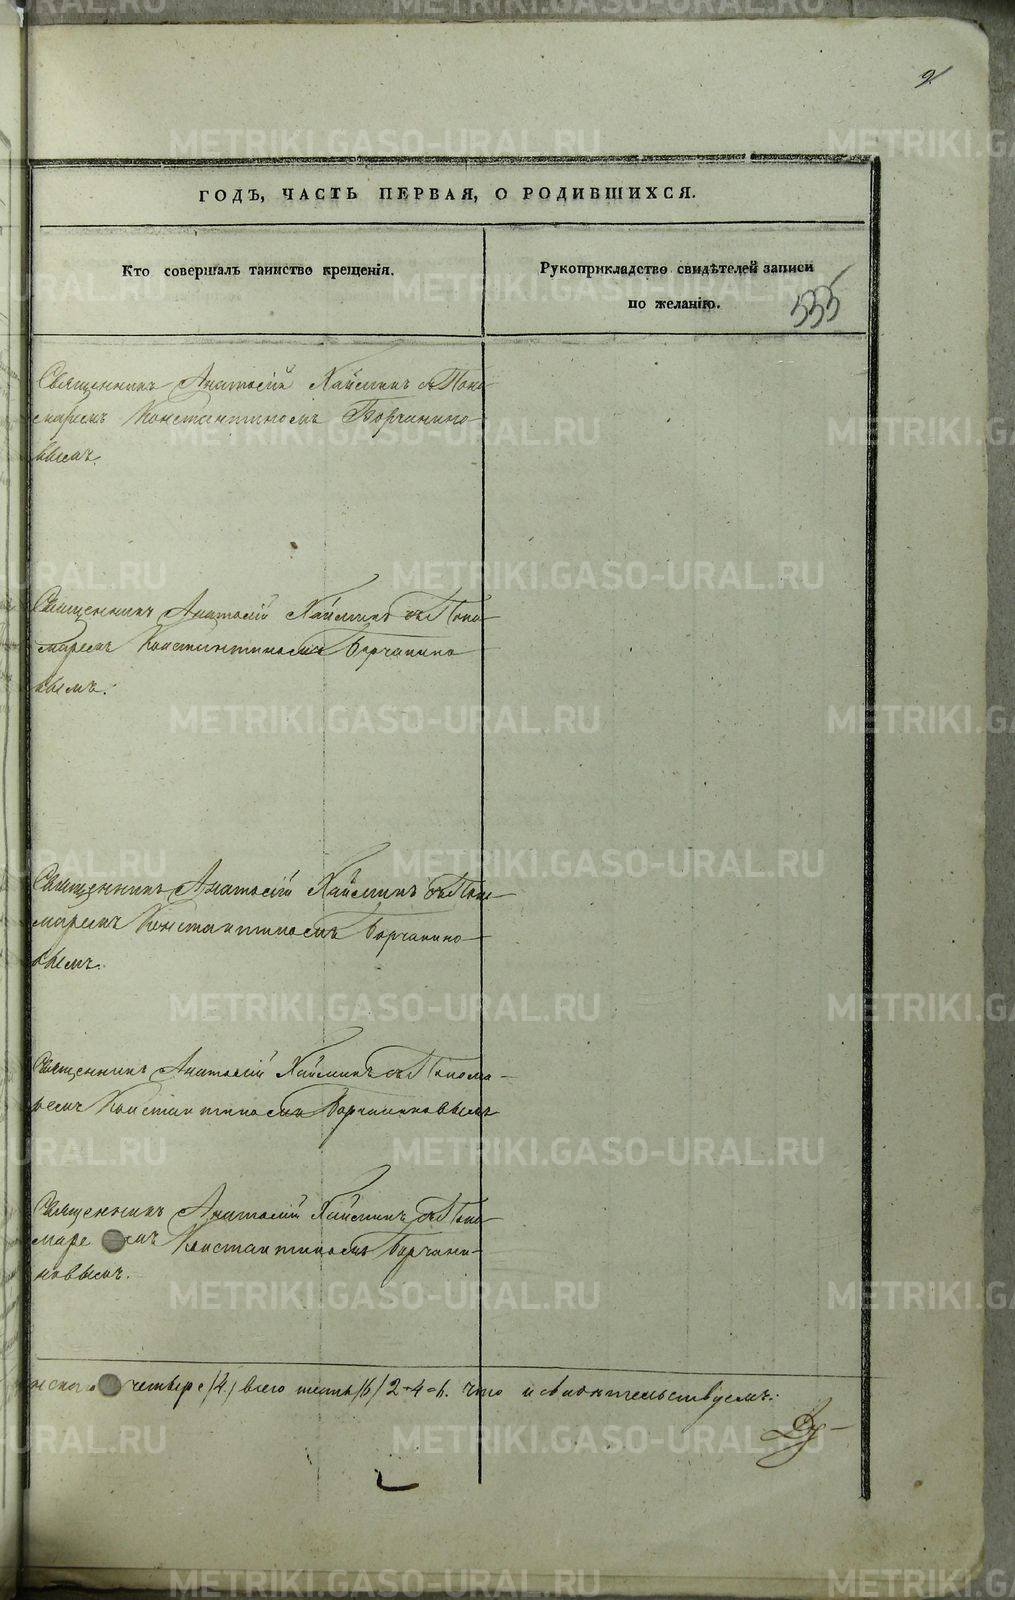 9
ГОДЪ, ЧАСТЬ ПЕРВАЯ, О РОДИВШИХСЯ.
Кто совершалъ таинство крещенія.
Рукоприкладство свидѣтелей записи
по желанію.
335
Священникъ Анатолій Хайминъ съ Поно-
маремъ Константиномъ Борчанино-
вымъ.
Священникъ Анатолій Хайминъ съ Поно-
маремъ Константиномъ Борчанино
вымъ.
Священникъ Анатолій Хайминъ съ Поно-
маремъ Константиномъ Борчанино-
вымъ.
Священникъ Анатолій Хайминъ съ Понома-
ремъ Константиномъ Борчаниновымъ
Священникъ Анатолій Хайминъ съ Поно-
маремъ Константиномъ Борчани-
новымъ.
нскаго четыре /4/ всего шесть /6/ 2+4=6. что и свидѣтельствуемъ:
METRIKI.GASO-URAL.RU